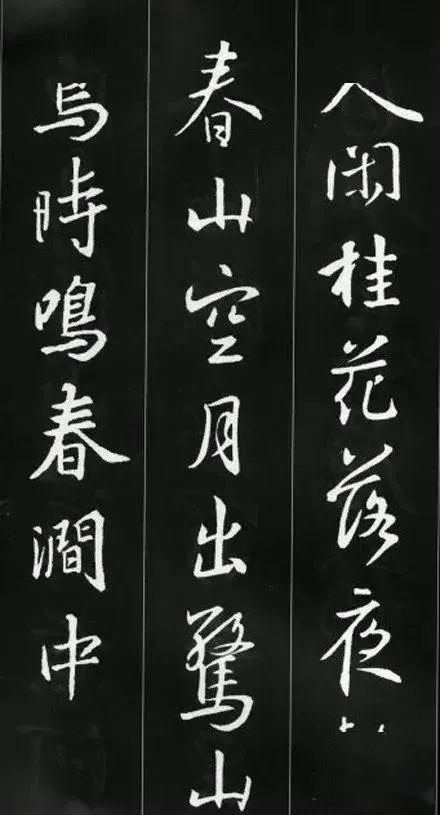 人閑桂花落夜
春山空月出驚山
鸟時鳴春澗中